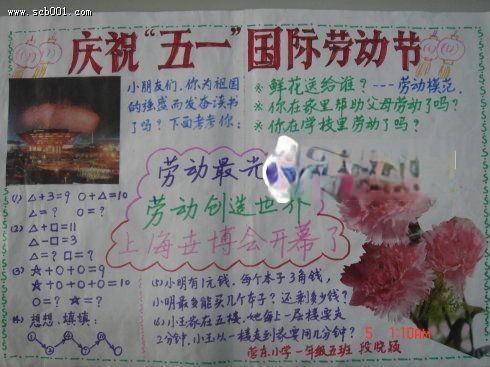 www.scb001.com
庆祝“五一”国际劳动节
小朋友们,你为祖国
的强盛而发奋读书
了吗?下面考考你:
※鲜花送给谁?---劳动模范.
※你在家里帮助父母劳动了吗?
※你在学校里劳动了吗?
劳动最光
劳动创造世界
上海世博会开幕了
(1) △+3=9 ○+△=10
△=? ○=?
(2) △+□=11
△-□=3
△=?□=?
(3) ☆+○+○=9
☆+☆+○+○=10
○=? ☆=?
(4) 想想,填填:
(5)小明有1元钱.每个本子3角钱,
小明最多能买几个本子?还剩多少钱?
(6)小玉家在五楼,她每上一层楼要走
2分钟.小玉从一楼走到家要用几分钟?
5 1:10AM
小学一年级五班 段晓颖